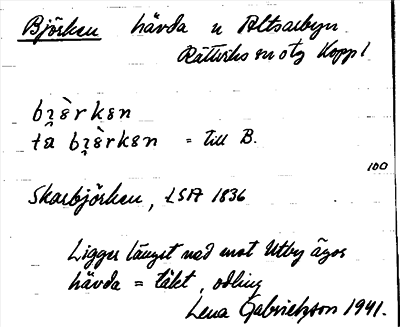 Björken hävda n Altsarbyn
Rättviks sn o tg Kopp l
bi̯èrkɛn
ta bi̯èrkɛn = till B.
100
Skarbjörken, LSA 1836
Ligger längst ned mot Utby ägor
hävda = täkt, odling
Lena Gabrielsson 1941.